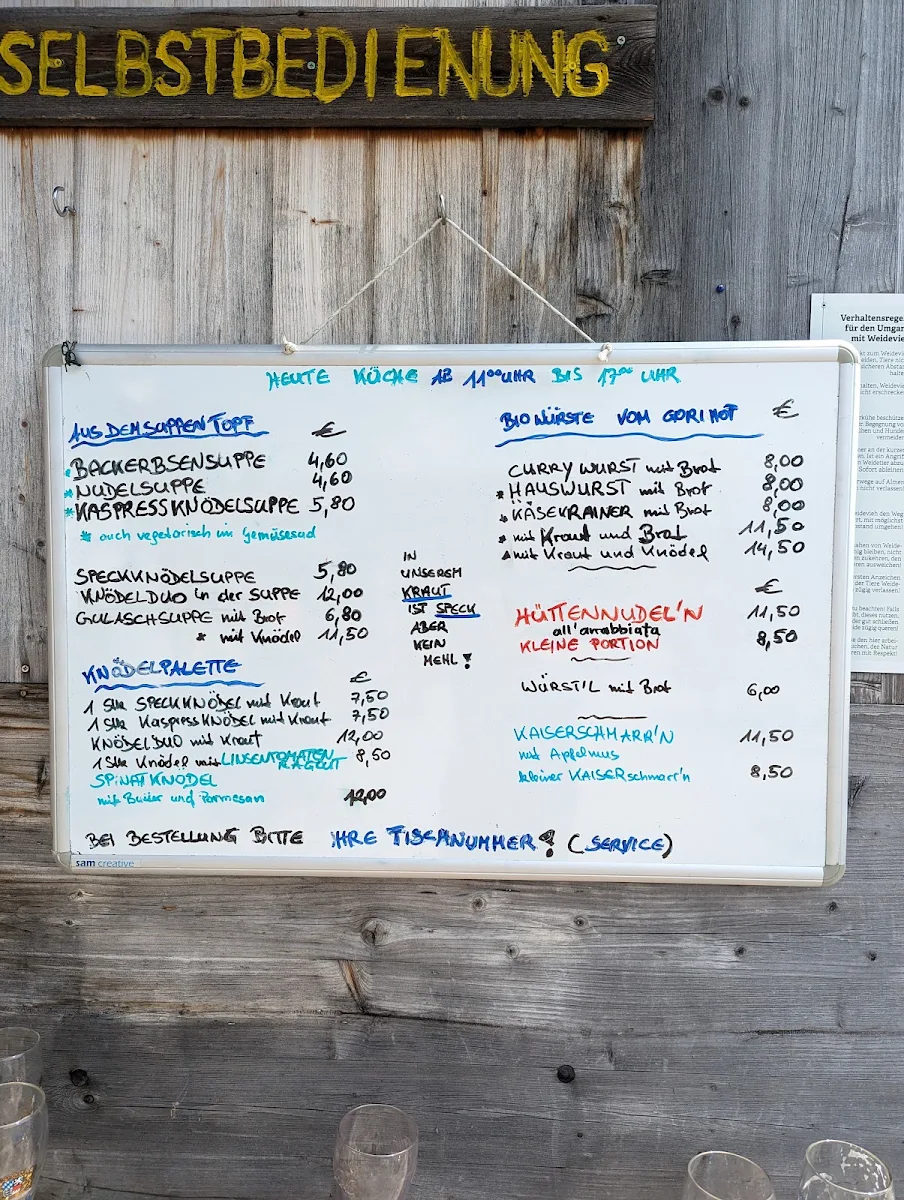 SELBSTBEDIENUNG
HEUTE KÜCHE AB 11⁰⁰ UHR BIS 17⁰⁰ UHR
AUS DEM SUPPENTOPF €
*BACKERBSENSUPPE 4,60
*NUDELSUPPE 4,60
*KASPRESSKNÖDELSUPPE 5,80
* auch vegetarisch im Gemüsesud
SPECKKNÖDELSUPPE 5,80
KNÖDELDUO in der SUPPE 12,00
GULASCHSUPPE mit Brot 6,80
* mit Knödel 11,50
KNÖDELPALETTE €
1 Stk SPECKKNÖDEL mit Kraut 7,50
1 Stk KaspressKNÖDEL mit Kraut 7,50
KNÖDELDUO mit Kraut 12,00
1 Stk Knödel mit LINSENTOMATEN RAGOUT 8,50
SPINATKNÖDEL
mit Butter und Parmesan 12,00
IN
UNSEREM
KRAUT
IST SPECK
ABER
KEIN
MEHL!
BIOWÜRSTE VOM GORIHOF €
CURRYWURST mit Brot 8,00
* HAUSWURST mit Brot 8,00
* KÄSEKRAINER mit Brot 8,00
* mit Kraut und Brot 11,50
* mit Kraut und Knödel 14,50
€
HÜTTENNUDEL'N 11,50
all'arrabbiata
KLEINE PORTION 8,50
WÜRST'L mit Brot 6,00
KAISERSCHMARR'N 11,50
mit Apfelmus
kleiner KAISERschmarr'n 8,50
BEI BESTELLUNG BITTE IHRE TISCHNUMMER! (SERVICE)
sam creative
Verhaltensrege
für den Umgan
mit Weidevie